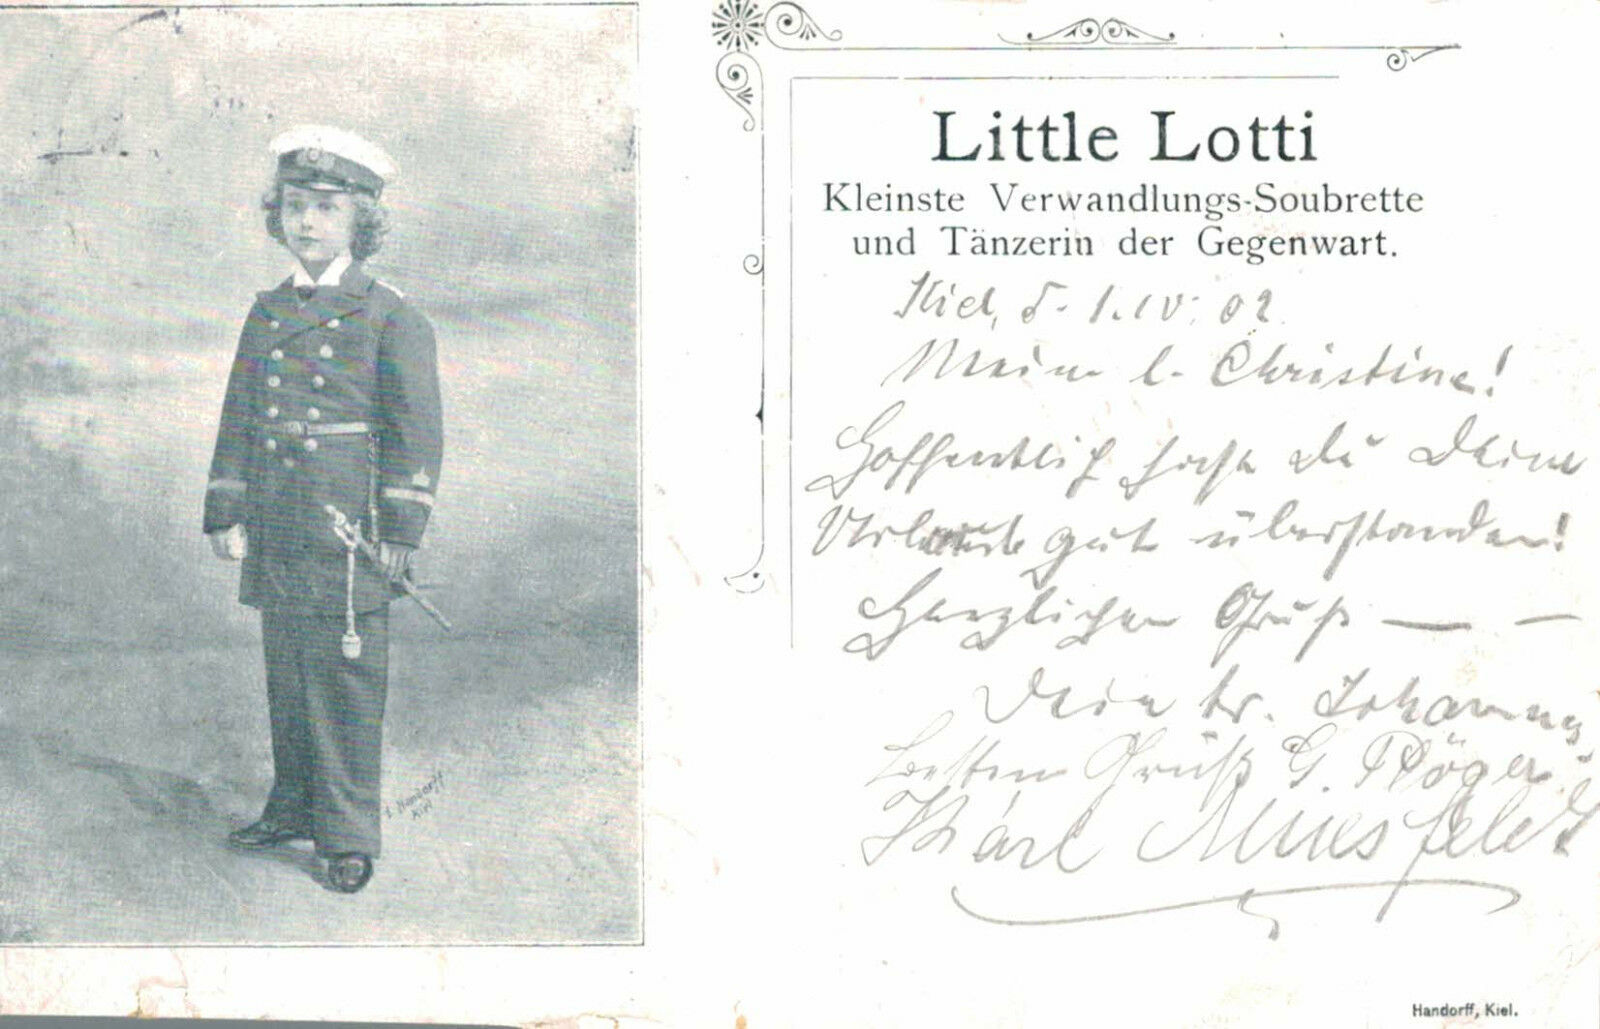 Little Lotti
Kleinste Verwandlungs-Soubrette
und Tänzerin der Gegenwart.
Kiel, d. 1. IV. 02.
Meine l. Christine!
Hoffentlich hast du Deine
gut überstanden!
Herzlichen Gruß — —
Dein tr. Johannes
Besten Gruß G. Plöger
Karl
Handorff
Kiel
Handorff, Kiel.